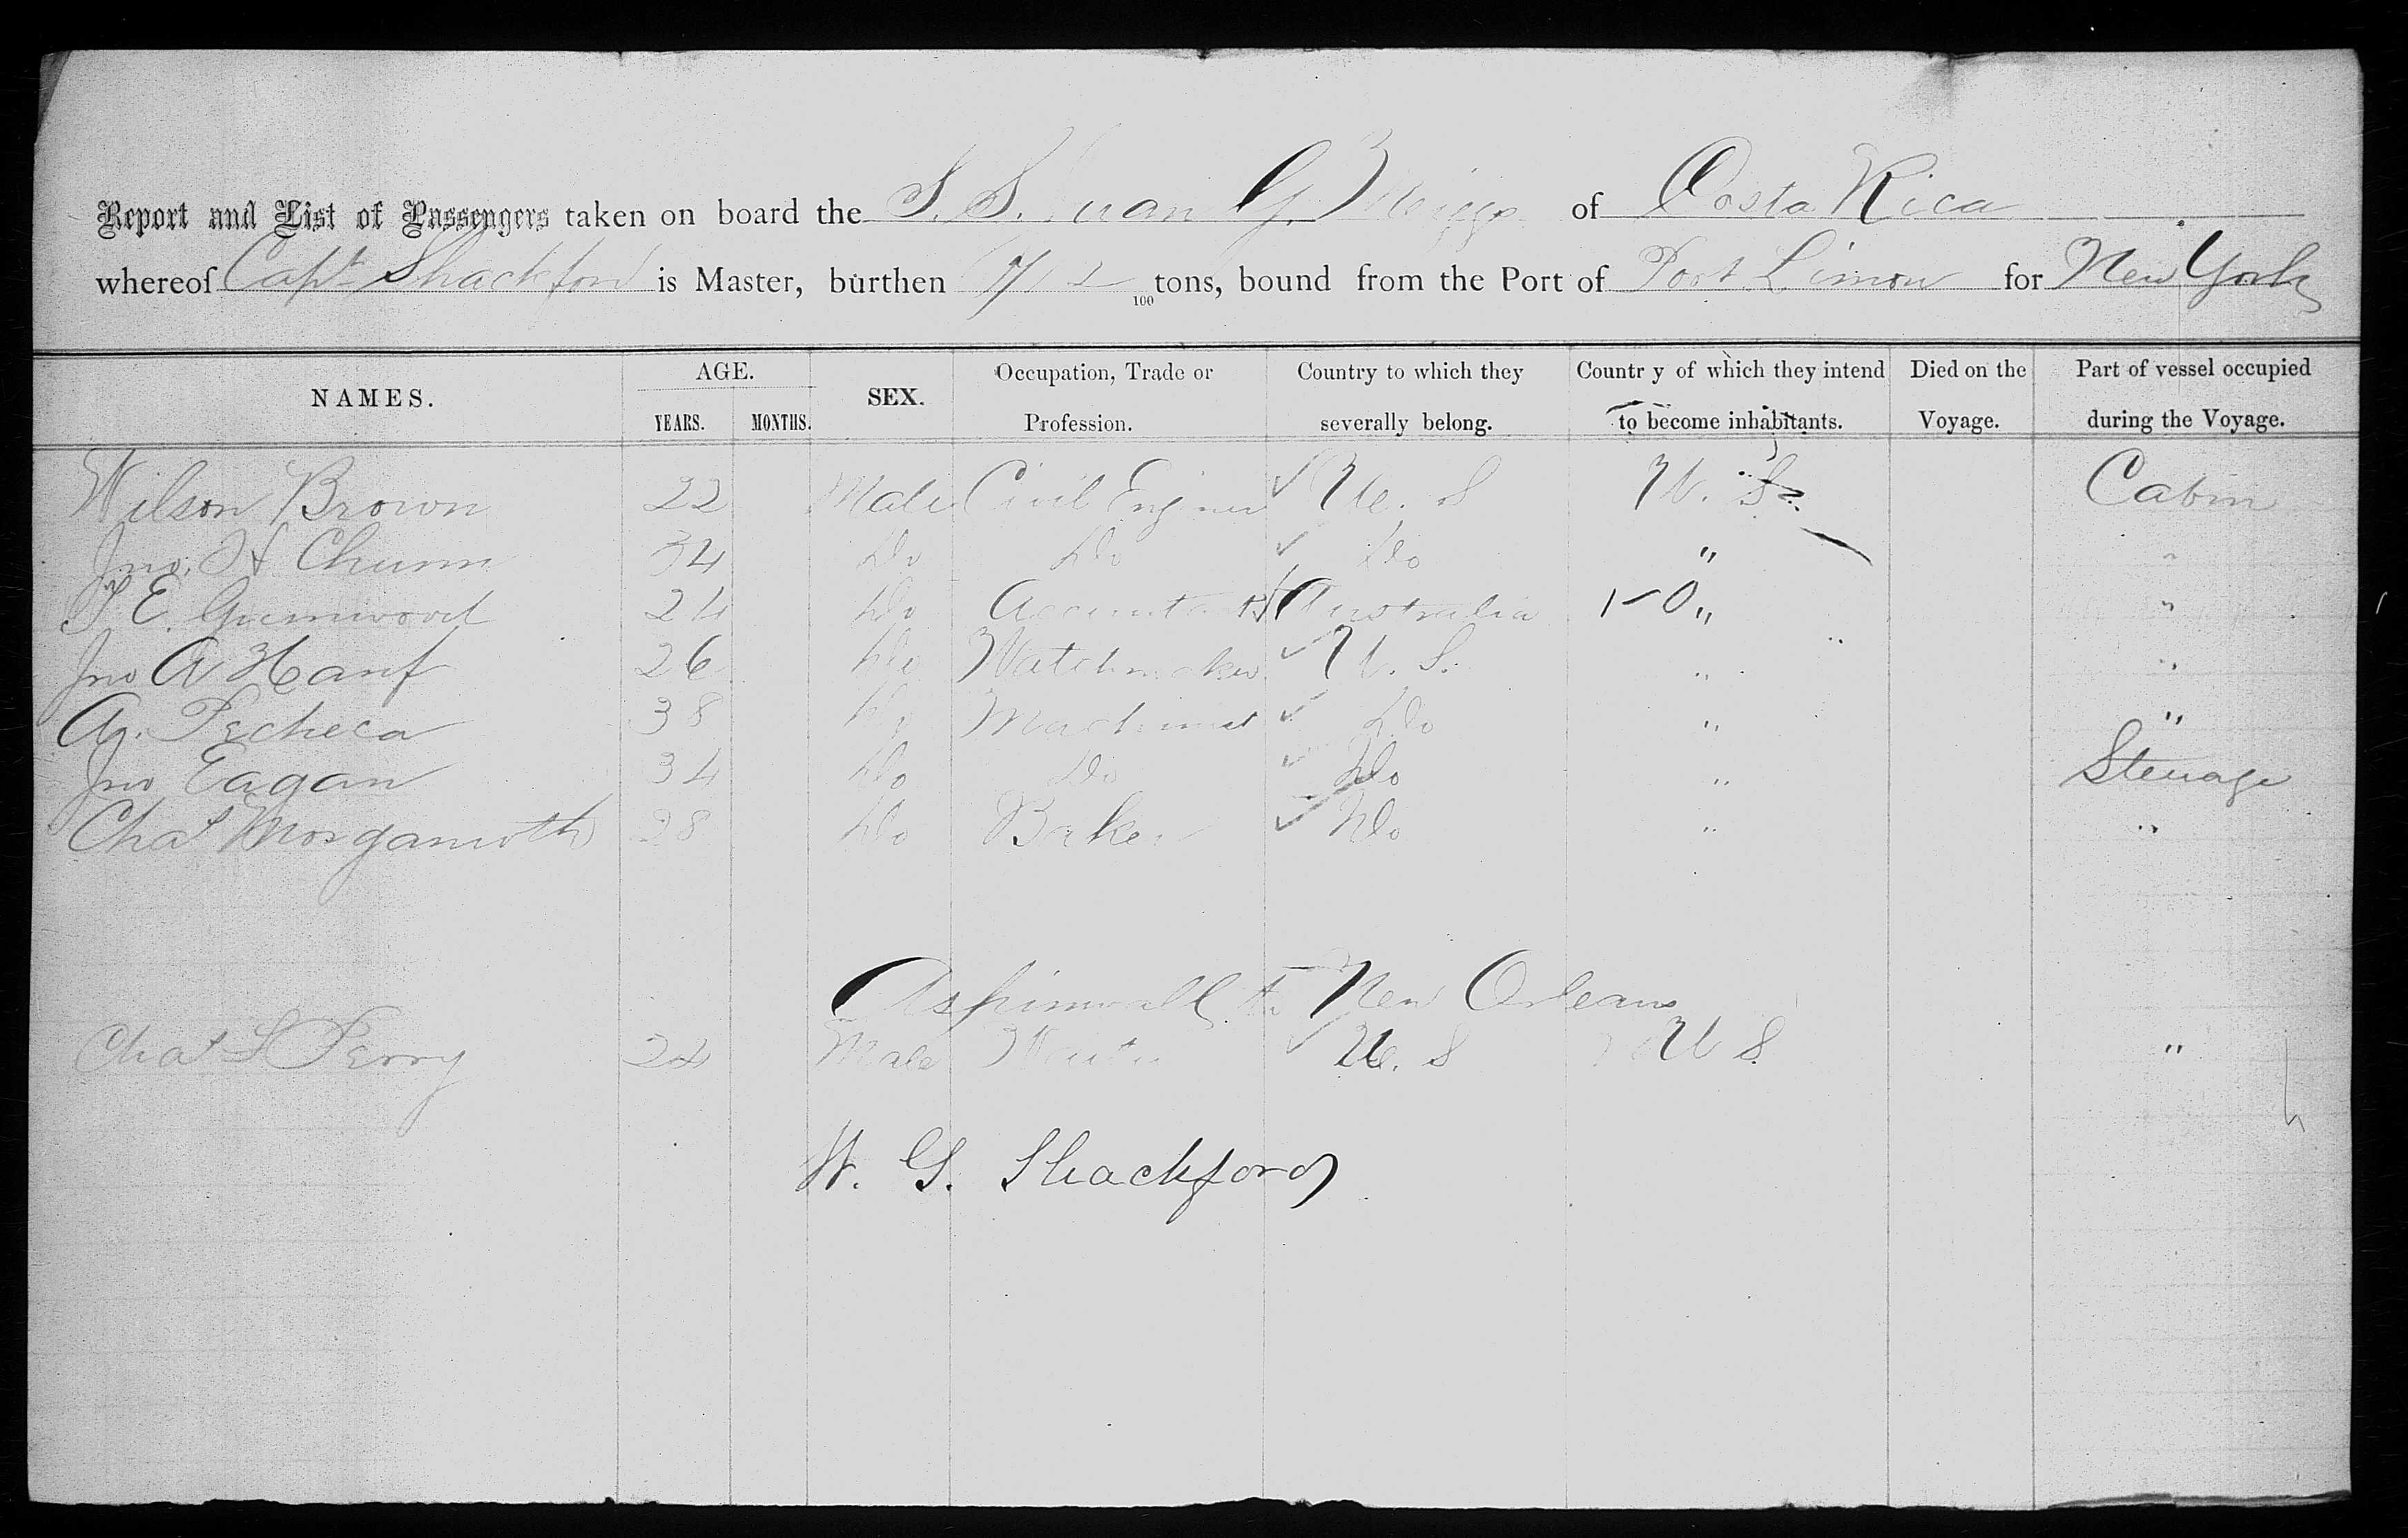 Report and List of Passengers taken on board the S. S. Juan G. Meiggs of Costa Rica
whereof Capt Shackford is Master, burthen tons, bound from the Port of Port Limon for New York
NAMES. AGE. YEARS. MONTHS. SEX. Occupation, Trade or Profession. Country to which they severally belong. Country of which they intend to become inhabitants. Died on the Voyage. Part of vessel occupied during the Voyage.
Wilson Brown 22 Male Civil Engineer ✓ U. S U. S. Cabin
Jno. H Chunn 34 Do Do ✓ Do " "
E. Greenwood 24 Do Accountant Australia 1-0 " "
Jno A Hanf 26 Do Watchmaker ✓ U. S. " "
Ag. Pecheca 38 Do Machinist ✓ Do " "
Jno Eagan 34 Do Do ✓ Do " Steerage
Chas Morganroth 28 Do Baker ✓ Do " "
Aspinwall to New Orleans
Chas S Perry 24 Male Waiter ✓ U. S U S. "
W. G. Shackford